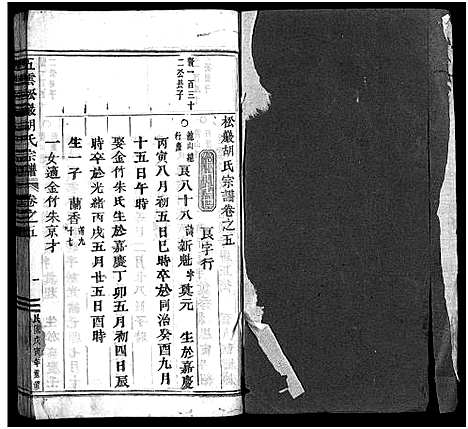 松巖胡氏宗譜卷之五
良字行
賢一百三十
二公長子
良八十八諱新魁字奠元 生於嘉慶
丙寅八月初五日巳時卒於同治癸酉九月
十五日午時
娶金竹朱氏生於嘉慶丁卯五月初四日辰
時卒於光緒丙戌五月廿五日酉時
生一子 蘭香
一女適金竹朱京才
五雲松巖胡氏宗譜 卷之五 一